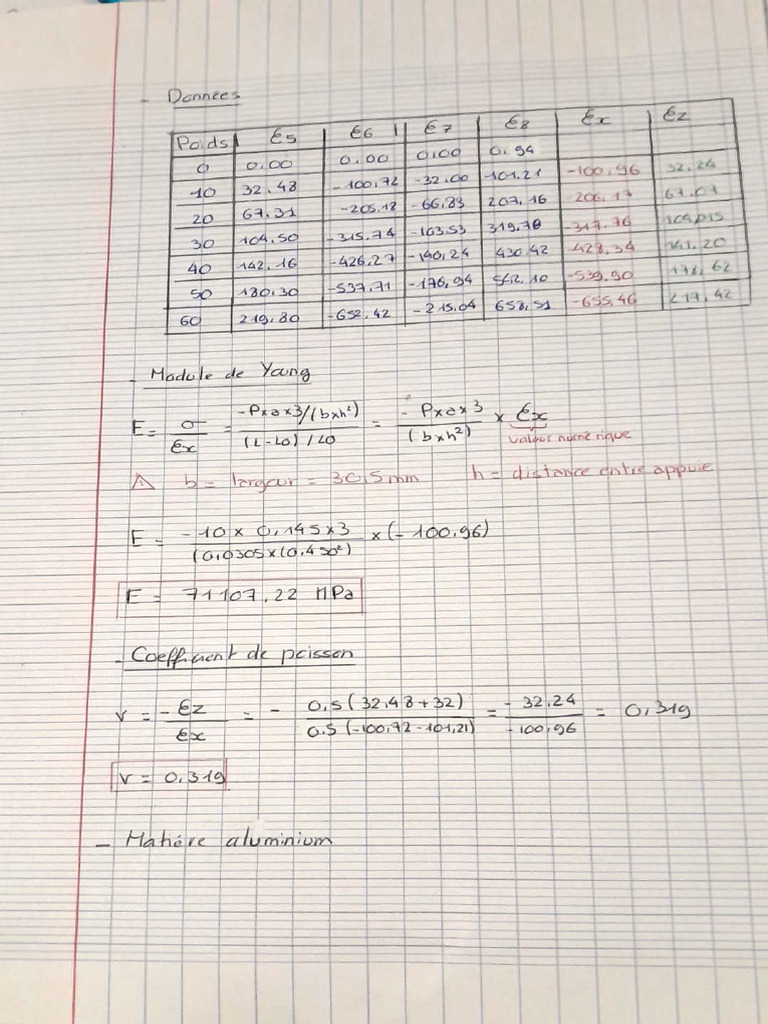 - Données
Poids | ε5 | ε6 | ε7 | ε8 | εx | εz
0 | 0.00 | 0.00 | 0.00 | 0.94
10 | 32.48 | -100.72 | -32.00 | 101.21 | -100,96 | 32.24
20 | 67.31 | -205.18 | -66.83 | 207.16 | - 206.17 | 67.07
30 | 104.50 | -315.74 | -103.53 | 319.78 | -317.76 | 104,015
40 | 142.16 | -426.27 | -140,24 | 430.42 | -428,34 | 141.20
50 | 180.30 | -537.71 | -176,94 | 542.10 | -539,90 | 178,62
60 | 219.80 | -652.42 | -215.04 | 658,51 | -655,46 | 217,42
- Module de Young
E = σ/εx = -P×a×3/(b×h²)/(L-L0)/L0 = -P×a×3/(b×h²) × εx
valeur numérique
⚠ b = largeur = 30,5mm h = distance entre appuie
E = -10 × 0,145×3/(0,0305×(0,450²) ×(-100,96)
E = 71107,22 MPa
- Coefficient de poisson
v = -εz/εx = - 0,5(32,48+32)/0.5(-100,72-101,21) = -32,24/-100,96 = 0,319
v = 0,319
- Matière aluminium